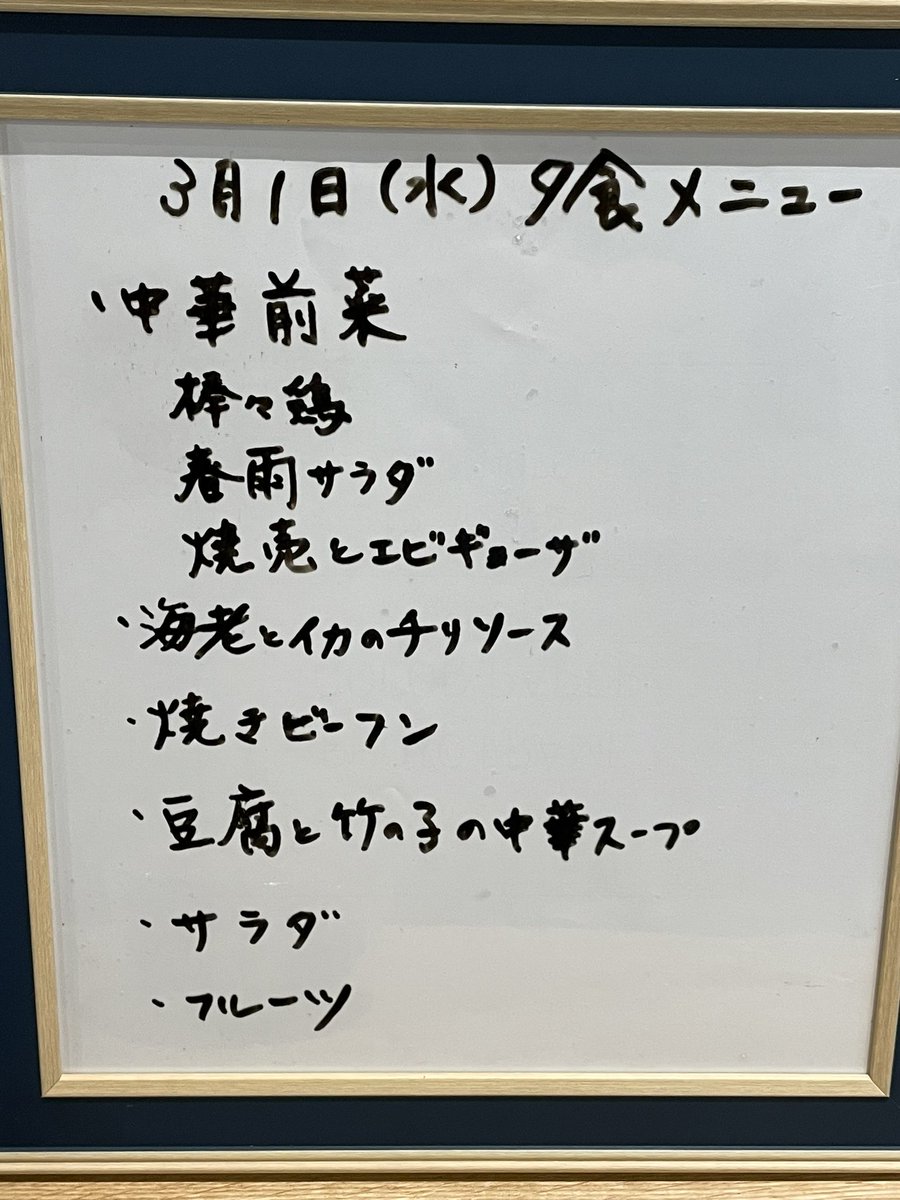 3月1日(水)夕食メニュー
・中華前菜
棒々鶏
春雨サラダ
焼売とエビギョーザ
・海老とイカのチリソース
・焼きビーフン
・豆腐と竹の子の中華スープ
・サラダ
・フルーツ